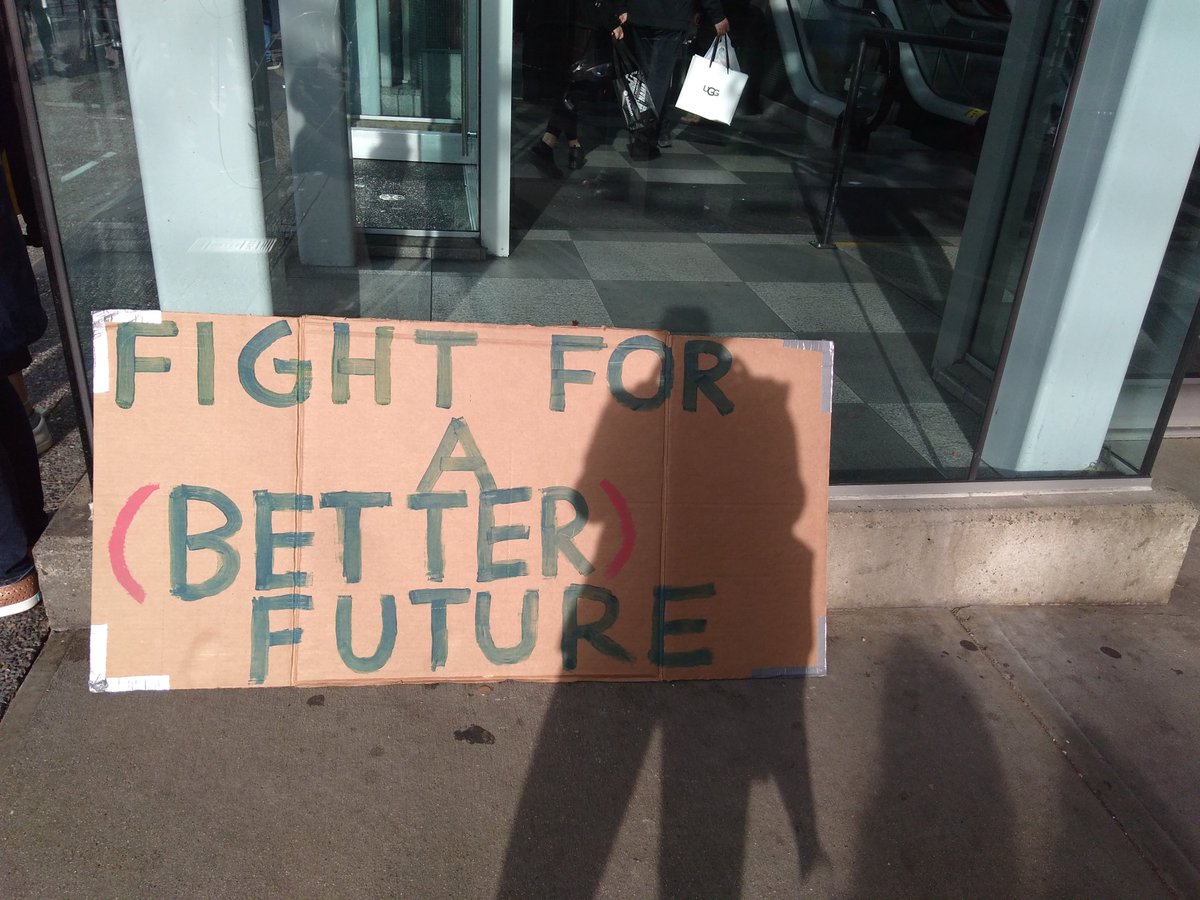 UGG
FIGHT FOR
A
(BETTER)
FUTURE